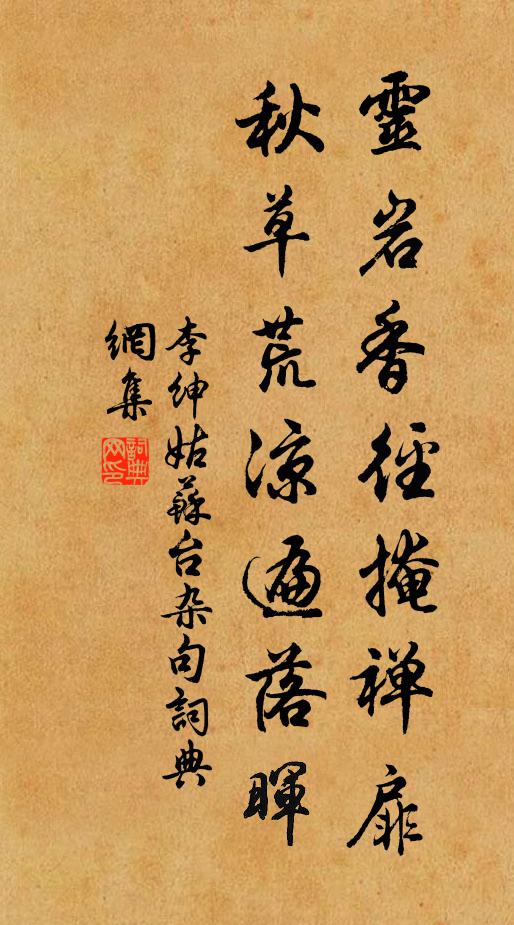 靈岩香徑掩禅扉
秋草荒涼遍落暉
李紳姑蘇台杂句詞典
網集
詞典
网印